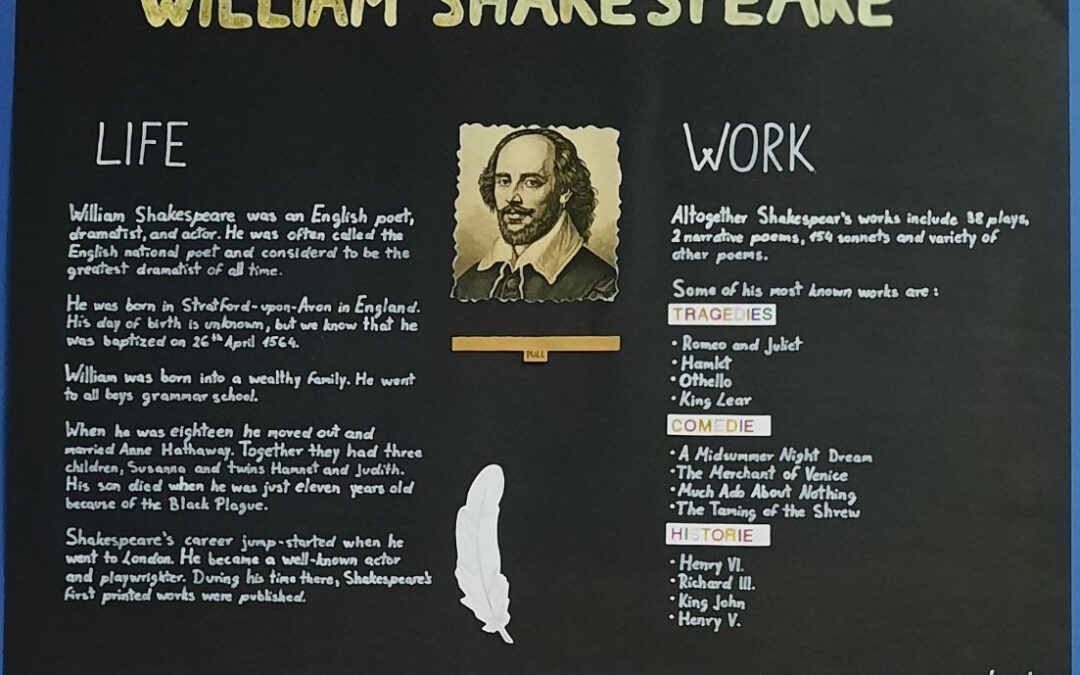 WILLIAM SHAKESPEARE
LIFE
William Shakespeare was an English poet,
dramatist, and actor. He was often called the
English national poet and considerd to be the
greatest dramatist of all time.
He was born in Stratford-upon-Avon in England.
His day of birth is unknown, but we know that he
was baptized on 26th April 1564.
William was born into a wealthy family. He went
to all boys grammar school.
When he was eighteen he moved out and
married Anne Hathaway. Together they had three
children, Susanna and twins Hamnet and Judith.
His son died when he was just eleven years old
because of the Black Plague.
Shakespeare's career jump-started when he
went to London. He became a well-known actor
and playwrighter. During his time there, Shakespeare's
first printed works were published.
PULL
WORK
Altogether Shakespear's works include 38 plays,
2 narrative poems, 154 sonnets and variety of
other poems.
Some of his most known works are:
TRAGEDIES
• Romeo and Juliet
• Hamlet
• Othello
• King Lear
COMEDIE
• A Midsummer Night Dream
• The Merchant of Venice
• Much Ado About Nothing
• The Taming of the Shrew
HISTORIE
• Henry VI.
• Richard III.
• King John
• Henry V.